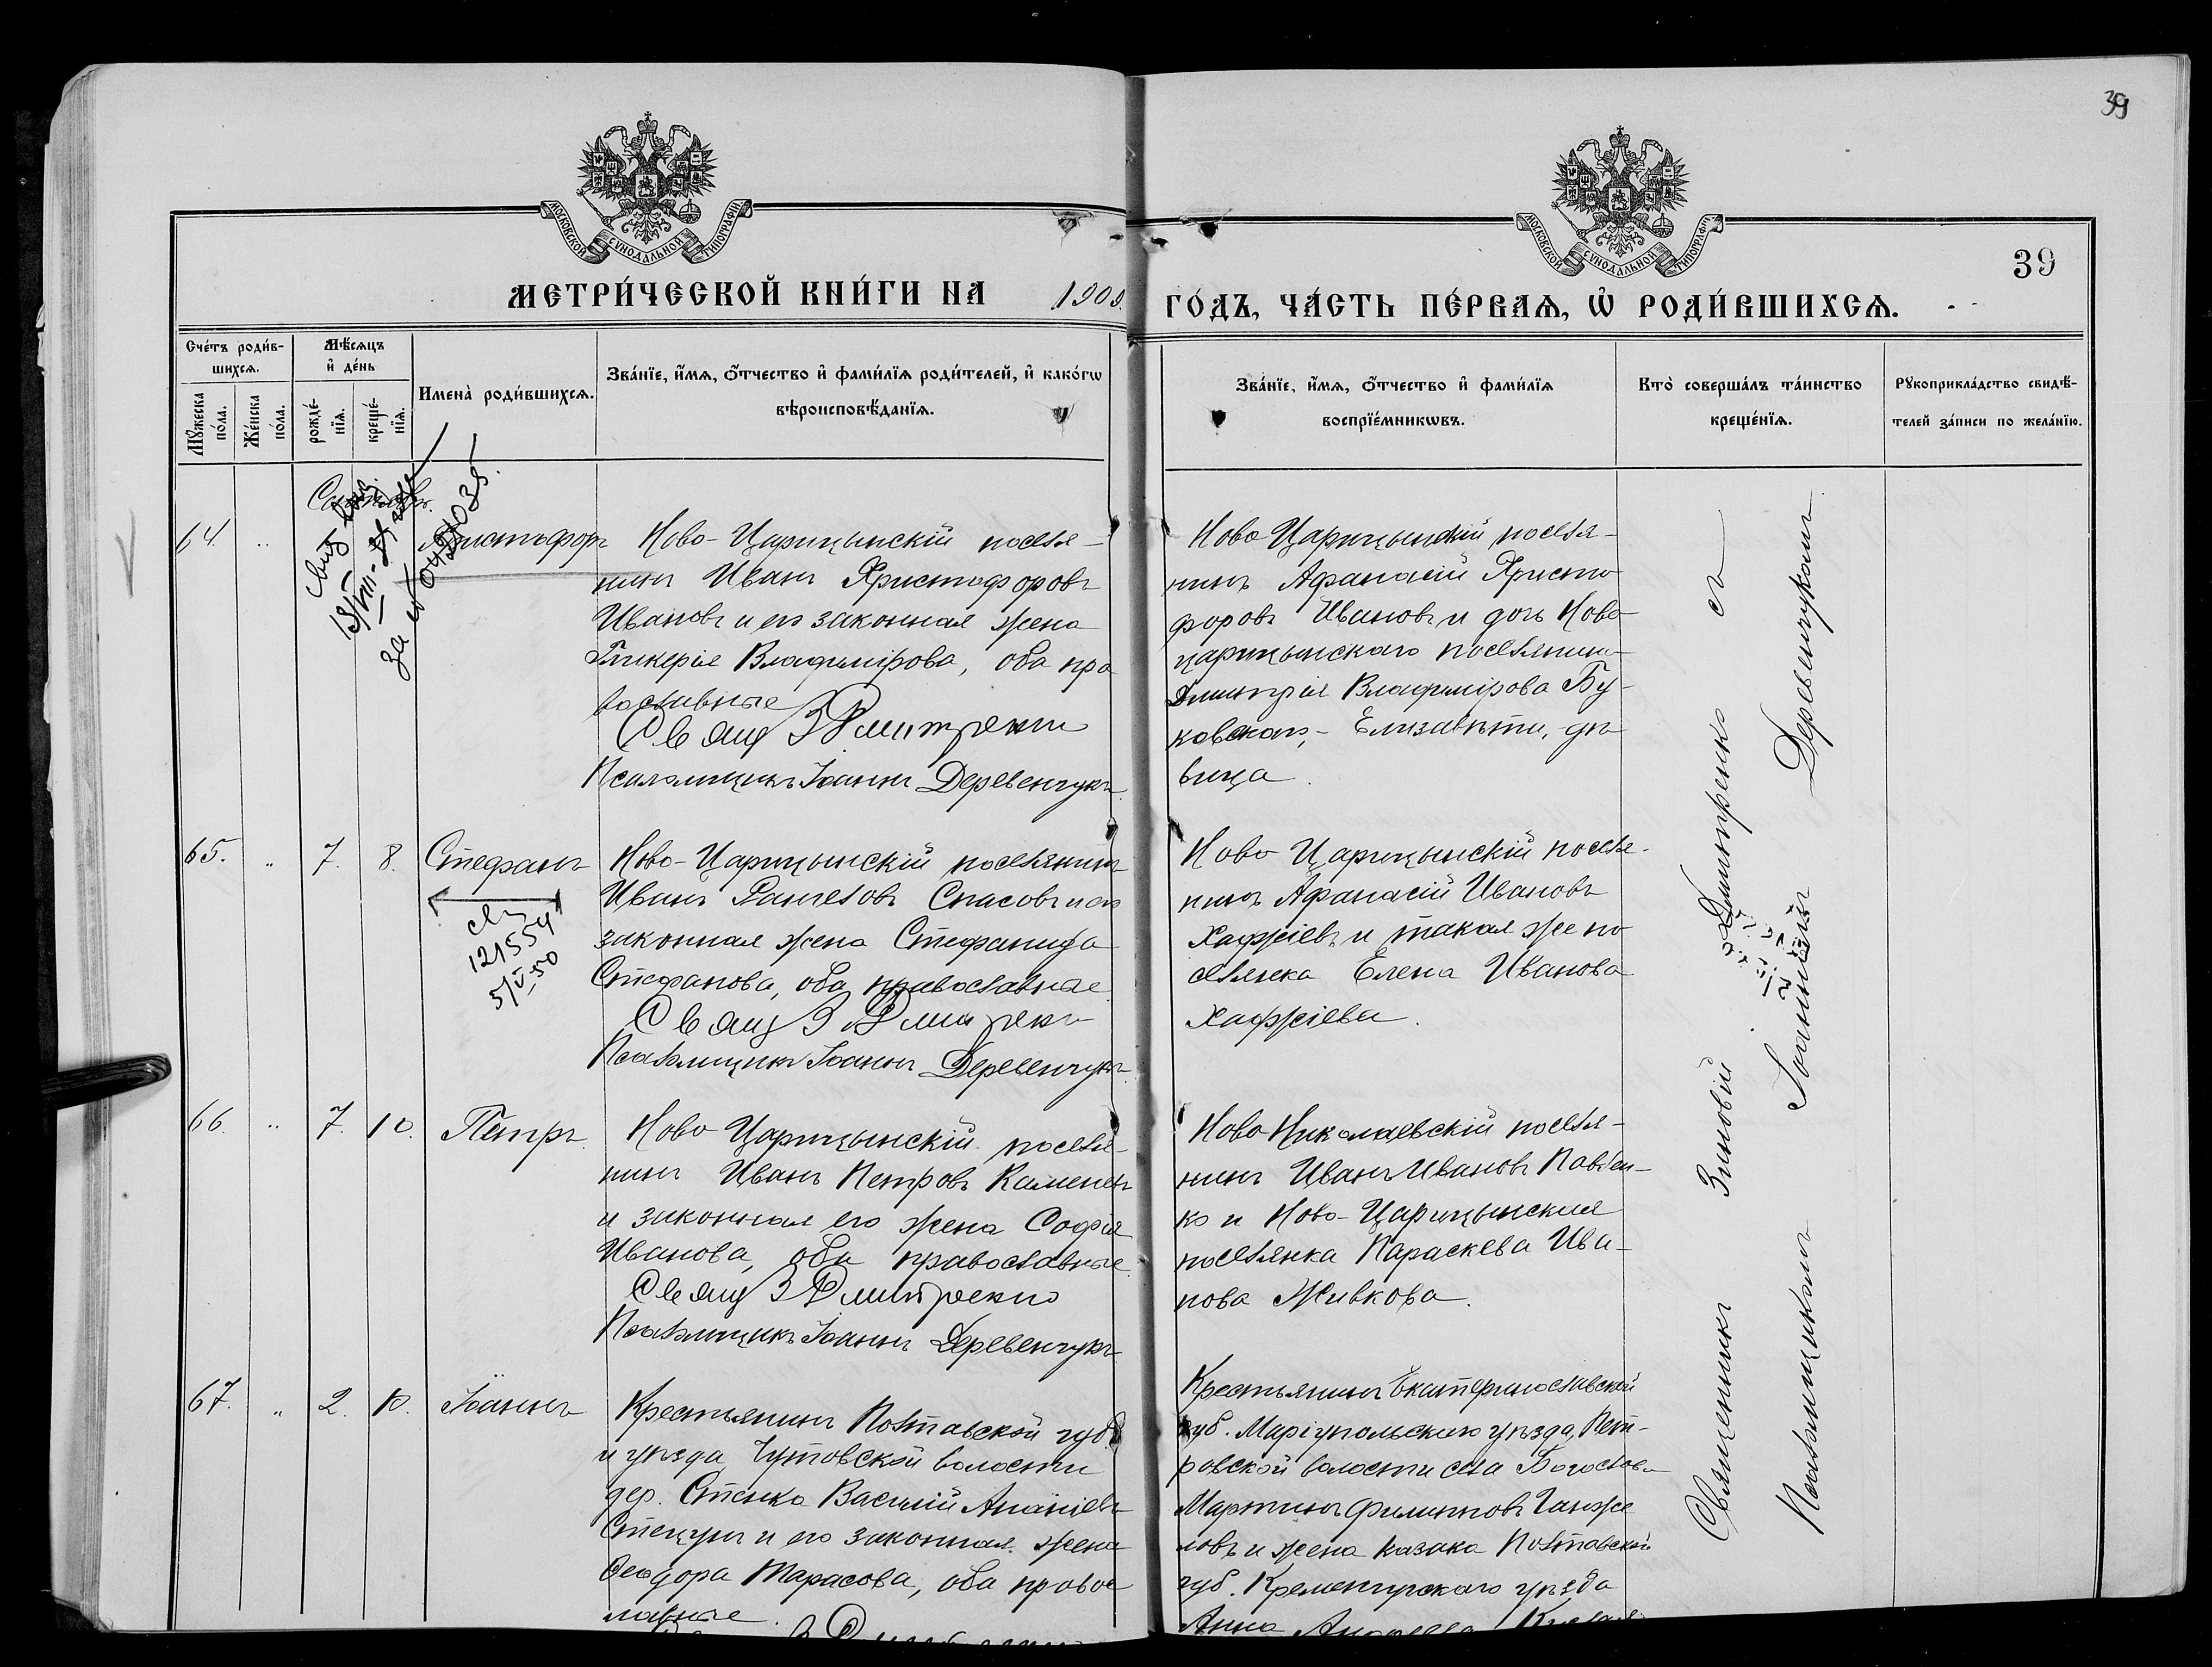 39
МОСКОВСКОЙ СѴНОДАЛЬНОЙ ТИПОГРАФІИ
МОСКОВСКОЙ СѴНОДАЛЬНОЙ ТИПОГРАФІИ
39
МЕТРИ́ЧЕСКОЙ КНИ́ГИ НА 1909 ГО́ДЪ, ЧА́СТЬ ПЕ́РВАѦ, Ѡ҆ РОДИ́ВШИХСѦ.
Сче́тъ роди́в-
шихсѧ.
Мꙋ́жеска по́ла.
Же́нска по́ла.
Мѣ́сяцъ
и҆ де́нь
рожде́-
нїѧ.
креще́-
нїѧ.
И҆мена̀ роди́вшихсѧ.
Зва́нїе, и҆́мѧ, ѻ҆́тчество и҆ фами́лїѧ роди́телей, и҆ како́гѡ
вѣроисповѣ́данїѧ.
Зва́нїе, и҆́мѧ, ѻ҆́тчество и҆ фами́лїѧ
воспрїе́мникѡвъ.
Кто̀ соверша́лъ та́инство
креще́нїѧ.
Рꙋкоприкла́дство свидѣ́-
телей за́писи по жела́нїю.
64. „ Христофоръ
Ново-Царицынскій поселя-
нинъ Иванъ Христофоровъ
Ивановъ и его законная жена
Гликерія Владимірова, оба пра
вославные
Свящ З Дмитренко
Псаломщикъ Іоаннъ Деревенчукъ.
Ново Царицынскій поселя-
нинъ Афанасій Христо
форовъ Ивановъ и дочь Ново
царицынскаго поселянина
Димитрія Владимірова Бу-
ковскаго, - Елизавета, дѣ
вица.
65. „ 7. 8. Стефанъ
121554
5/V-50
Ново-Царицынскій поселянинъ
Иванъ Спасовъ и его
законная жена Стефанида
Стефанова, оба православные.
Свящ З Дмитренко
Псаломщикъ Іоаннъ Деревенчукъ.
Ново Царицынскій поселя-
нинъ Афанасій Ивановъ
Хаджіевъ и такая же по
селянка Елена Иванова
Хаджіева.
66. „ 7. 10. Петръ.
Ново Царицынскій поселя-
нинъ Иванъ Петровъ
и законная его жена Софія
Иванова, оба православные.
Свящ З Дмитренко
Псаломщикъ Іоаннъ Деревенчукъ.
Ново Николаевскій поселя-
нинъ Иванъ Ивановъ Павлен-
ко и Ново-Царицынская
поселянка Параскева Ива-
нова Живкова.
67. „ 2. 10. Іоаннъ
Крестьянинъ Полтавской губ.
и уѣзда Чутовской волости
дер. Стенка Василій Ананіевъ
и его законная жена
Ѳеодора Тарасова, оба правос
лавные.
Крестьянинъ Екатеринославской
губ. Маріупольскаго уѣзда, Пет-
ровской волости села
Мартинъ Филипповъ Ганже
ловъ и жена казака Полтавской
губ. Кременчугскаго уѣзда
Анна
Священникъ Зиновій Дмитренко съ
Псаломщикомъ Іоанномъ Деревенчукомъ.